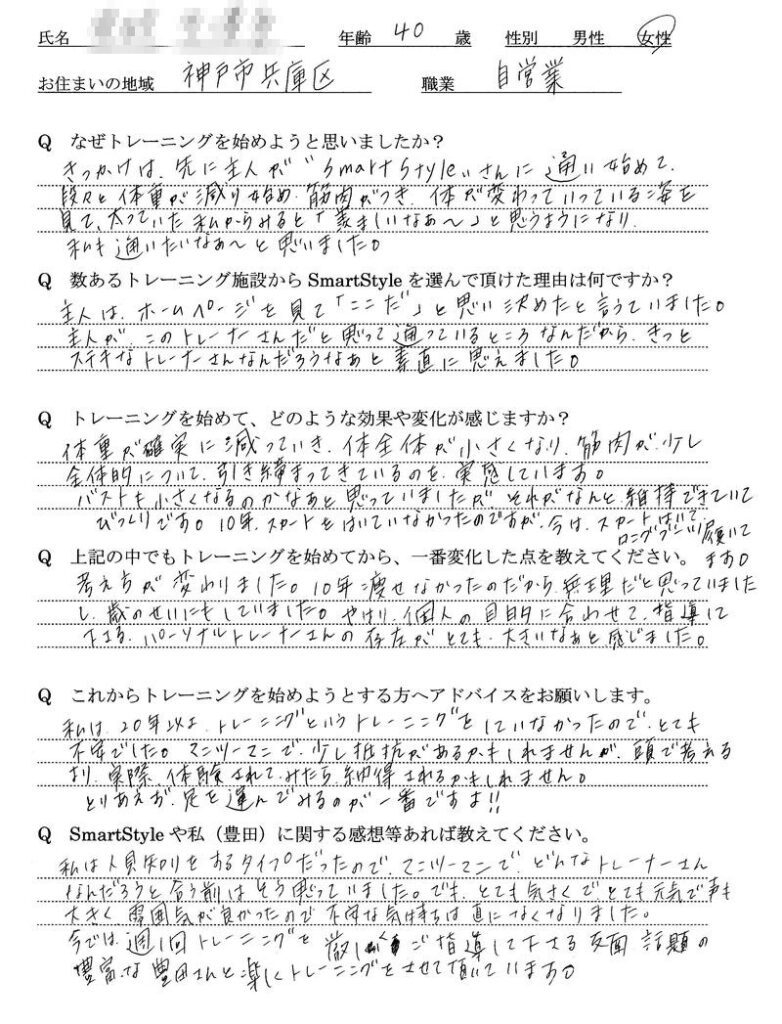 氏名 年齢 40 歳 性別 男性 女性
お住まいの地域 神戸市兵庫区 職業 自営業
Q なぜトレーニングを始めようと思いましたか？
きっかけは、先に主人が"SmartStyle"さんに通い始めて、
段々と体重が減り始め、筋肉がつき、体が変わっていっている姿を
見て、太っていた私からみると「羨ましいなぁ〜」と思うようになり、
私も通いたいなぁ〜と思いました。
Q 数あるトレーニング施設から SmartStyle を選んで頂けた理由は何ですか？
主人は、ホームページを見て「ここだ」と思い決めたと言うていました。
主人が、このトレーナーさんだと思って通っているところなんだから、きっと
ステキなトレーナーさんなんだろうなあと素直に思えました。
Q トレーニングを始めて、どのような効果や変化が感じますか？
体重が確実に減っていき、体全体が小さくなり、筋肉が少し
全体的について、引き締まってきているのを、実感しています。
バストも小さくなるのかなあと思っていましたが それがなんと、維持できていて
びっくりです。10年、スカートをはいていなかったのですが、今は、スカートはいて、
ロングブーツ履いて
Q 上記の中でもトレーニングを始めてから、一番変化した点を教えてください。 ます。
考え方が変わりました。10年痩せなかったのだから無理だと思っていました
し、歳のせいにもしていました。やはり、個人の目的に合わせて、指導して
下さる、パーソナルトレーナーさんの存在がとても、大きいなぁと感じました。
Q これからトレーニングを始めようとする方へアドバイスをお願いします。
私は、20年以上、トレーニングというトレーニングをしていなかったので、とても
不安でした。マンツーマンで、少し抵抗があるかもしれませんが、頭で考える
より、実際、体験されてみたら、納得されるかもしれません。
とりあえず、足を運んでみるのが一番ですよ!!
Q SmartStyle や私（豊田）に関する感想等あれば教えてください。
私は人見知りをするタイプだったので、マンツーマンで、どんなトレーナーさん
なんだろうと会う前はそう思っていました。でも、とても気さくで、とても元気で声も
大きく、雰囲気が良かったので不安な気持ちは直になくなりました。
今では、週1回トレーニングを厳しく ご指導して下さる反面 話題の
豊富な豊田さんと楽しくトレーニングをさせて頂いています。